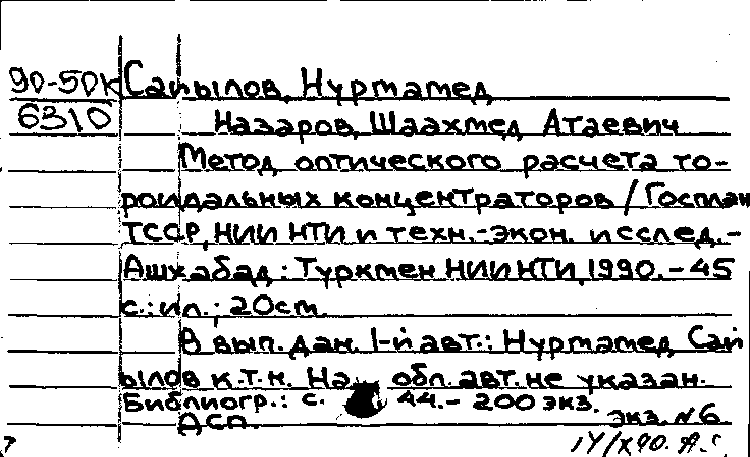 90-50К Сапылов, Нуртамед
6310 Назаров, Шаахмед Атаевич
Метод оптического расчета то-
роидальных концентраторов / Госплан
ТССР, НИИ НТИ и техн.-экон. исслед.-
Ашхабад: Туркмен НИИНТИ, 1990.-45
с.: ил.; 20см.
В вып. дан. 1-й авт.: Нуртамед Сап
ылов к.т.н. На обл. авт. не указан.
Библиогр.: с. 44.- 200 экз.
ДСП. экз. №6